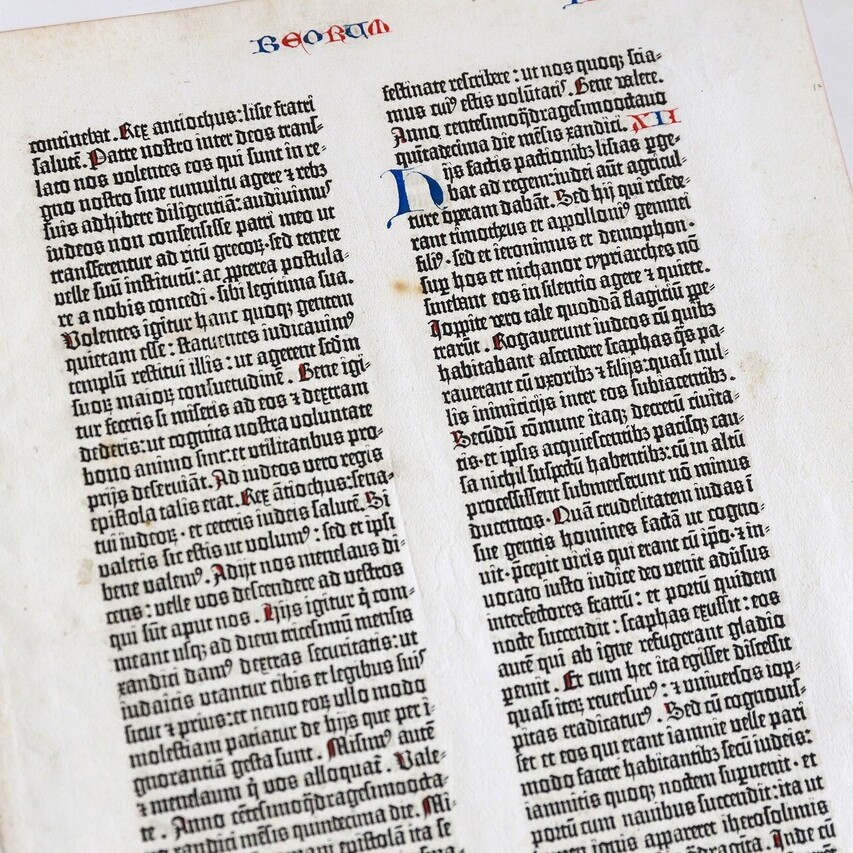 BEORUM
continebat. Rex antiochus: lisie fratri
salutē. Patre nostro inter deos trans-
lato nos volentes eos qui sunt in re-
gno nostro sine tumultu agere ⁊ rebꝫ
suis adhibere diligentiā: audivimꝰ
iudeos non consensisse patri meo ut
transferrentur ad ritū grecoꝝ. sed tenere
velle suū institutū: ac ꝓpterea postula-
re a nobis concedi. sibi legitima sua.
Volentes igitur hanc quoqꝫ gentem
quietam esse: statuentes iudicavimꝰ
templū restitui illis: ut agerent scdm̄
suoꝝ maioꝝ consuetudinē. Bene igi-
tur feceris si miseris ad eos ⁊ dextram
dederis: ut cognita nostra voluntate
bono animo sint: et utilitatibus pro-
prijs deserviāt. Ad iudeos vero regis
epistola talis erat. Rex ātiochus: sena-
tui iudeoꝝ. et ceteris iudeis salutē. Si
valetis sic estis ut volumꝰ: sed et ipsi
bene valemꝰ. Adijt nos menelaus di-
cens: velle vos descendere ad vestros
qui sūt aput nos. Hijs igitur q̇ com-
meant usqꝫ ad diem tricesimū mensis
xandici damꝰ dextras securitatis: ut
iudaicis utantur cibis et legibus suis
sicut ⁊ prius: et nemo eoꝝ ullo modo
molestiam paciatur de hijs que per i-
gnorantiā gesta sunt. Misimꝰ autē
⁊ menelaum q̇ vos alloquat̄. Vale-
te. Anno cētesimoq̄dragesimoocta-
vo xandici mēsis quindecima die. Mi-
romani epistolā ita se
festinate rescribere: ut nos quoqꝫ scia-
mus cuiꝰ estis volūtatis. Bene valere.
Anno centesimoq̄dragesimooctavo
quītadecima die mēsis xandici. XII
Hijs factis pactionibꝫ lisias ꝑge-
bat ad regem: iudei aūt agricul-
ture operam dabāt. Sed hij qui resede-
rant timotheus et appolloniꝰ gemnei
filiꝰ. sed et ieronimus et demophon.
suꝑ hos et nichanor cypriarches nō
sinebant eos in silentio agere ⁊ quiete.
Joppite vero tale quoddā flagitiū ꝑpe-
trarūt. Rogaverunt iudeos cū quibꝫ
habitabant ascendere scaphas q̄s pa-
raverant cū uxoribꝫ ⁊ filijs: quasi nul-
lis inimicicijs inter eos subiacentibꝫ.
Secūdū cōmune itaqꝫ decretū civita-
tis. et ipsis acquiescentibꝫ pacisqꝫ cau-
sa nichil suspectū habentibꝫ: cū in altū
processissent submerserunt nō minus
ducentos. Quā crudelitatem iudas ī
sue gentis homines factā ut cogno-
vit. p̄cepit viris qui erant cū ip̄o. ⁊ in-
vocato iusto iudice deo venit adv̄sus
interfectores fratrū: et portū quidem
nocte succendit: scaphas exussit: eos
autē qui ab igne refugerant gladio
ꝑemit. Et cum hec ita egisset discessit
quasi iteꝝ reversurꝰ: ⁊ universos iop-
pitas eradicaturꝰ. Sed cū cognovis-
set et eos qui erant iamnie velle pari
modo facere habitantibꝫ secū iudeis:
iamnitis quoqꝫ noctem suꝑvenit. et
portū cum navibus succendit: ita ut
ignis appareret iherosolimis
q̄dragīta. Inde cū